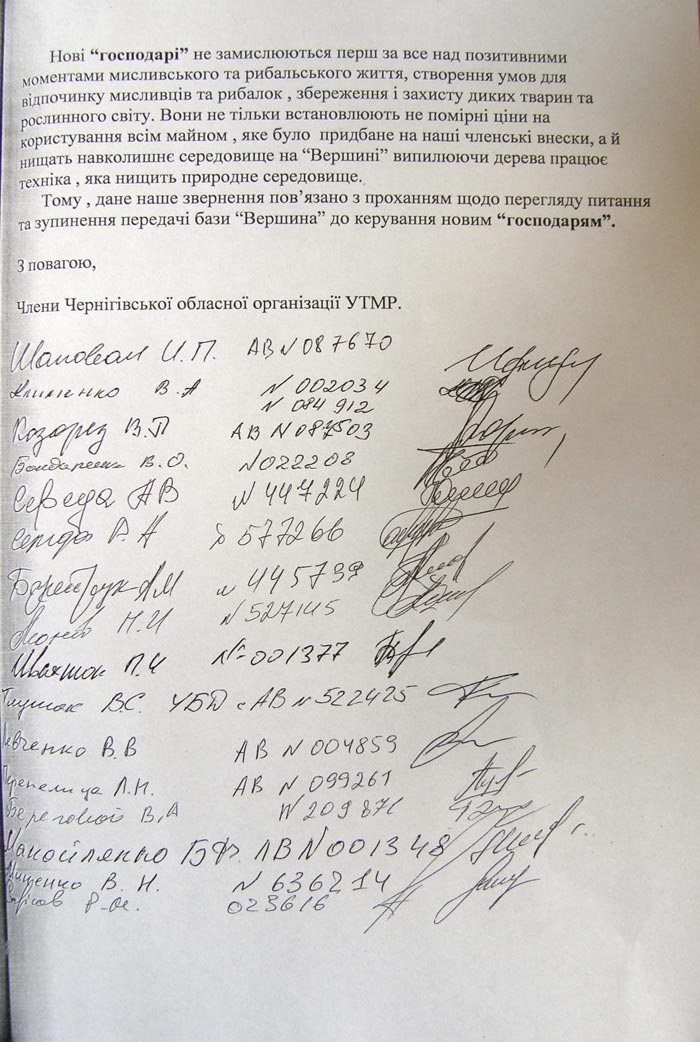 Нові “господарі” не замислюються перш за все над позитивними
моментами мисливського та рибальського життя, створення умов для
відпочинку мисливців та рибалок , збереження і захисту диких тварин та
рослинного світу. Вони не тільки встановлюють не помірні ціни на
користування всім майном , яке було придбане на наші членські внески, а й
нищать навколишнє середовище на “Вершині” випилюючи дерева працює
техніка , яка нищить природне середовище.
Тому , дане наше звернення пов’язано з проханням щодо перегляду питання
та зупинення передачі бази “Вершина” до керування новим “господарям”.
З повагою,
Члени Чернігівської обласної організації УТМР.
Шаповал И.П. АВ N 087670
В.А N 002034
N 084912
Козорез В.П АВ N 087503
В.О. N022208
Середа АВ N 447224
Р.А 577266
А.М N 445799
Н.И N 527145
П.И N-001377
В.С. УБД АВ N 522425
В.В АВ N 004859
Перепелица Л.Н. АВ N 099261
Береговой В.А N 209871
Манойленко Б.Ф. АВ N 001348
В. Н. N 636214
023616